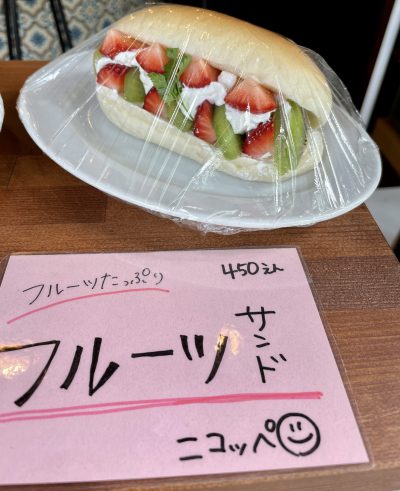 フルーツたっぷり
450えん
フルーツサンド
ニコッペ